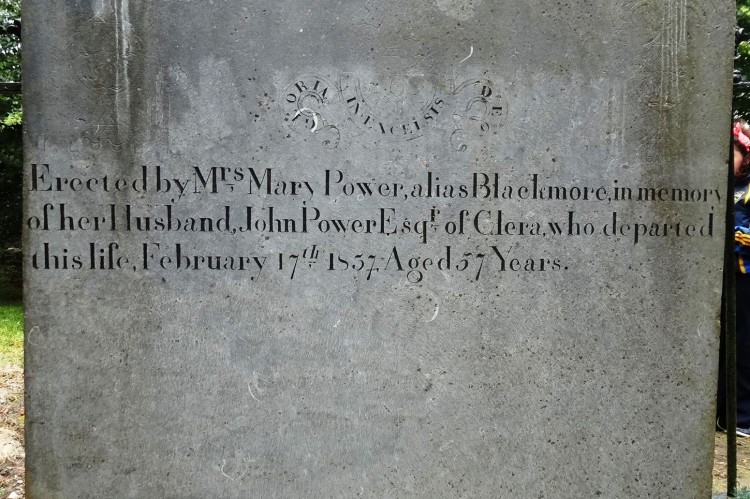 GLORIA IN EXCELSIS DEO
Erected by Mrs Mary Power, alias Blackmore, in memory
of her Husband, John Power Esqr of Clera, who departed
this life, February 17th 1857. Aged 57 Years.